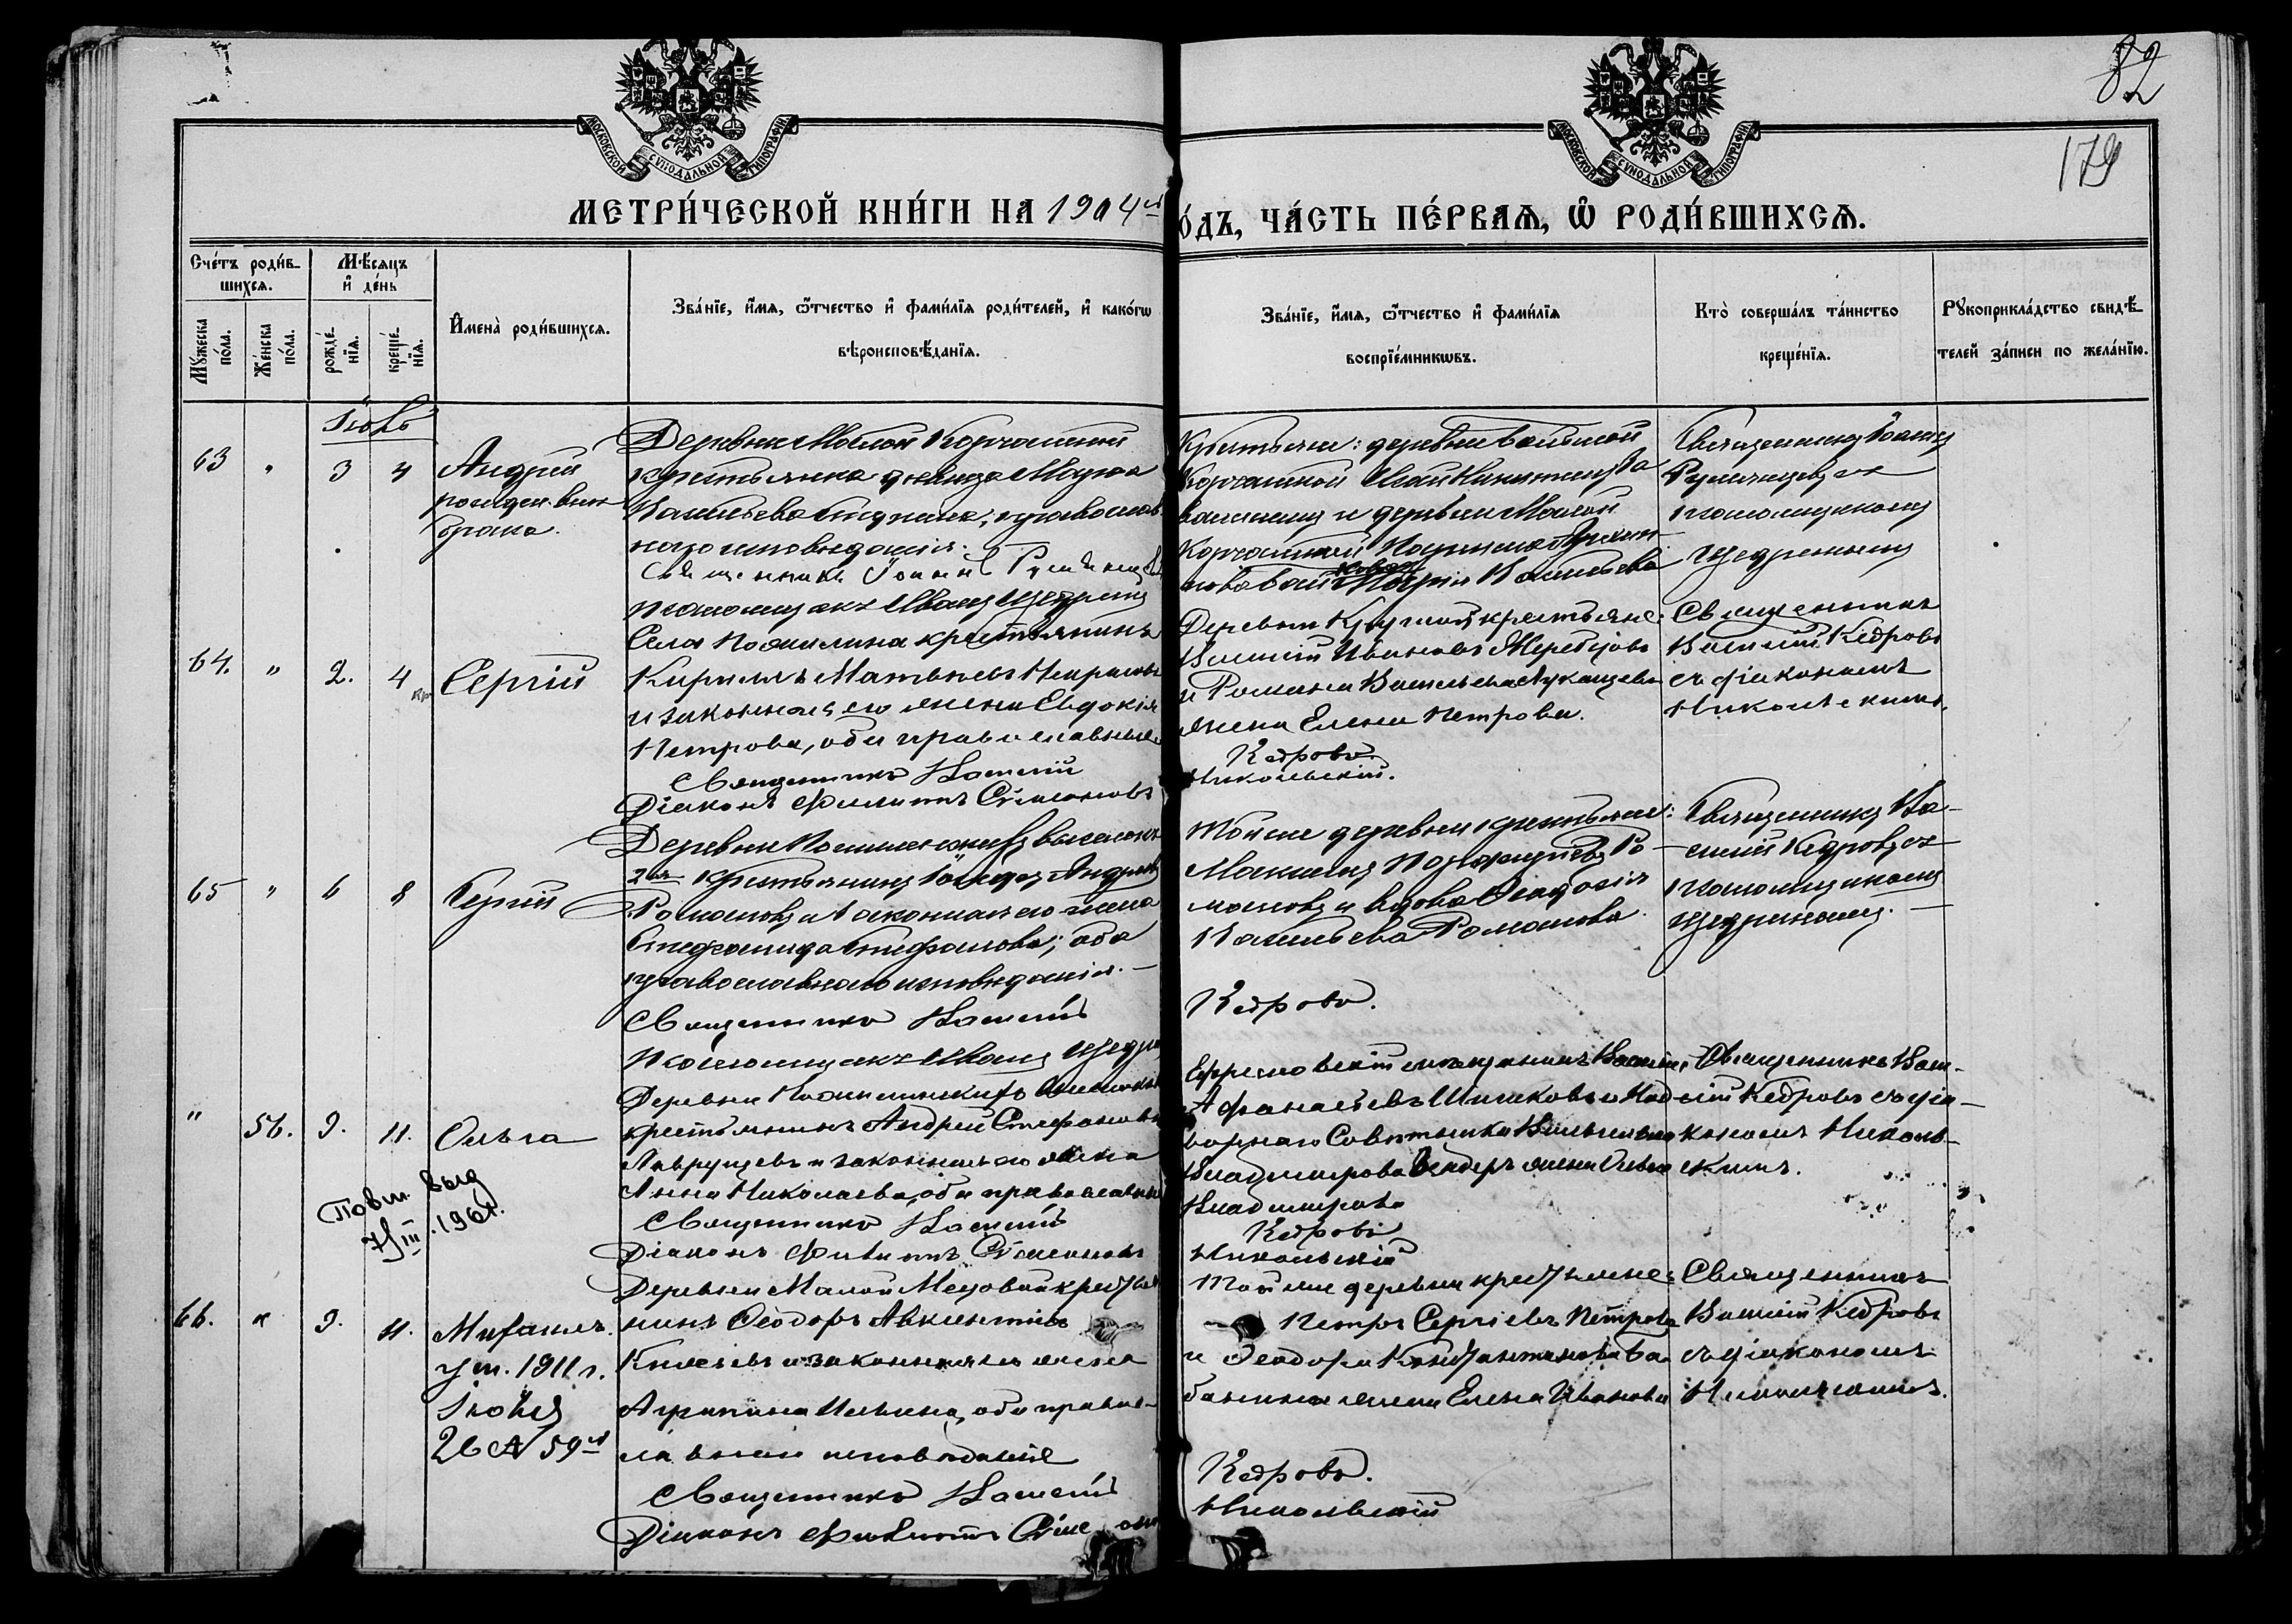 82
179
МОСКОВСКОЙ СѴНОДАЛЬНОЙ ТИПОГРАФІИ
МОСКОВСКОЙ СѴНОДАЛЬНОЙ ТИПОГРАФІИ
МЕТРИ́ЧЕСКОЙ КНИ́ГИ НА 1904й
О́ДЪ, ЧА́СТЬ ПЕ́РВАѦ, Ѡ҆ РОДИ́ВШИХСѦ.
Сче́тъ роди́в-
шихсѧ.
Мѣ́сѧцъ
и҆ де́нь
Мꙋ́жеска
по́ла.
Же́нска
по́ла.
рожде́-
нїѧ.
креще́-
нїѧ.
И҆мена̀ роди́вшихсѧ.
Зва́нїе, и҆́мѧ, ѻ҆́тчество и҆ фами́лїѧ роди́телей, и҆ како́гѡ
вѣроисповѣ́данїѧ.
Зва́нїе, и҆́мѧ, ѻ҆́тчество и҆ фами́лїѧ
воспрїе́мникѡвъ.
Кто̀ соверша́лъ та́инство
креще́нїѧ.
Рꙋкоприкла́дство свидѣ́-
телей за́писи по жела́нїю.
63 " 3 4
Андрей
рожден. внѣ
брака.
Деревни Малой Корчажной
крестьянка дѣвица Марѳа
Васильева православ
наго исповѣданія.
Священникъ Іоаннъ Румянцевъ
Псаломщикъ Иванъ Щедринъ
Крестьяне: деревни Большой
Корчажной Никитинъ
и деревни Малой
Корчажной
Марія Васильева
Священникъ Іоаннъ
Румянцевъ съ
псаломщикомъ
Щедринымъ
64. " 2. 4
Сергій
Села крестьянинъ
Кириллъ Матвѣевъ Некрасовъ
и законная его жена Евдокія
Петрова, оба православные
Священникъ Василій
Діаконъ Филиппъ Симоновъ
Деревни крестьяне:
Василій Ивановъ Жеребцовъ
и Романа Васильева Луканцева
жена Елена Петрова.
Кедровъ
Никольскій.
Священникъ
Василій Кедровъ
съ діакономъ
Никольскимъ.
65 " 6 8
Сергій
Деревни
крестьянинъ Андреевъ
Романовъ и законная его жена
Стефанида Стефанова; оба
православнаго исповѣданія.—
Священникъ Василій
Псаломщикъ Иванъ Щедринъ
Той же деревни крестьяне:
Ро-
мановъ и вдова
Васильева Романова.
Кедровъ.
Священникъ Ва-
силій Кедровъ съ
псаломщикомъ
Щедринымъ.—
" 56. 9. 11.
Ольга
Повт. выд
7/III.1961.
Деревни
крестьянинъ Андрей Стефановъ
Лаврущевъ и законная его жена
Анна Николаева, оба православные
Священникъ Василій
Діаконъ Филиппъ Симоновъ
Ефремовскій мѣщанинъ Василій
Афанасьевъ Шишковъ и Над-
ворнаго Совѣтника
Владимірова жена Ольга
Владимірова
Кедровъ
Никольскій
Священникъ Васи-
лій Кедровъ съ діа-
кономъ Николь-
скимъ.
66. " 9. 11.
Михаилъ.
ум. 1911 г.
26 № 59й
Деревни Малой Медовой крестья
нинъ Ѳеодоръ Авксентіевъ
Князевъ и законная его жена
Агрипина Ильина, оба право-
славнаго исповѣданія
Священникъ Василій
Діаконъ
Той же деревни крестьяне:
Петръ Сергіевъ Петровъ
и Ѳеодора Константинова Ба-
жена Елена Иванова
Кедровъ.
Никольскій
Священникъ
Василій Кедровъ
съ діакономъ
Никольскимъ.